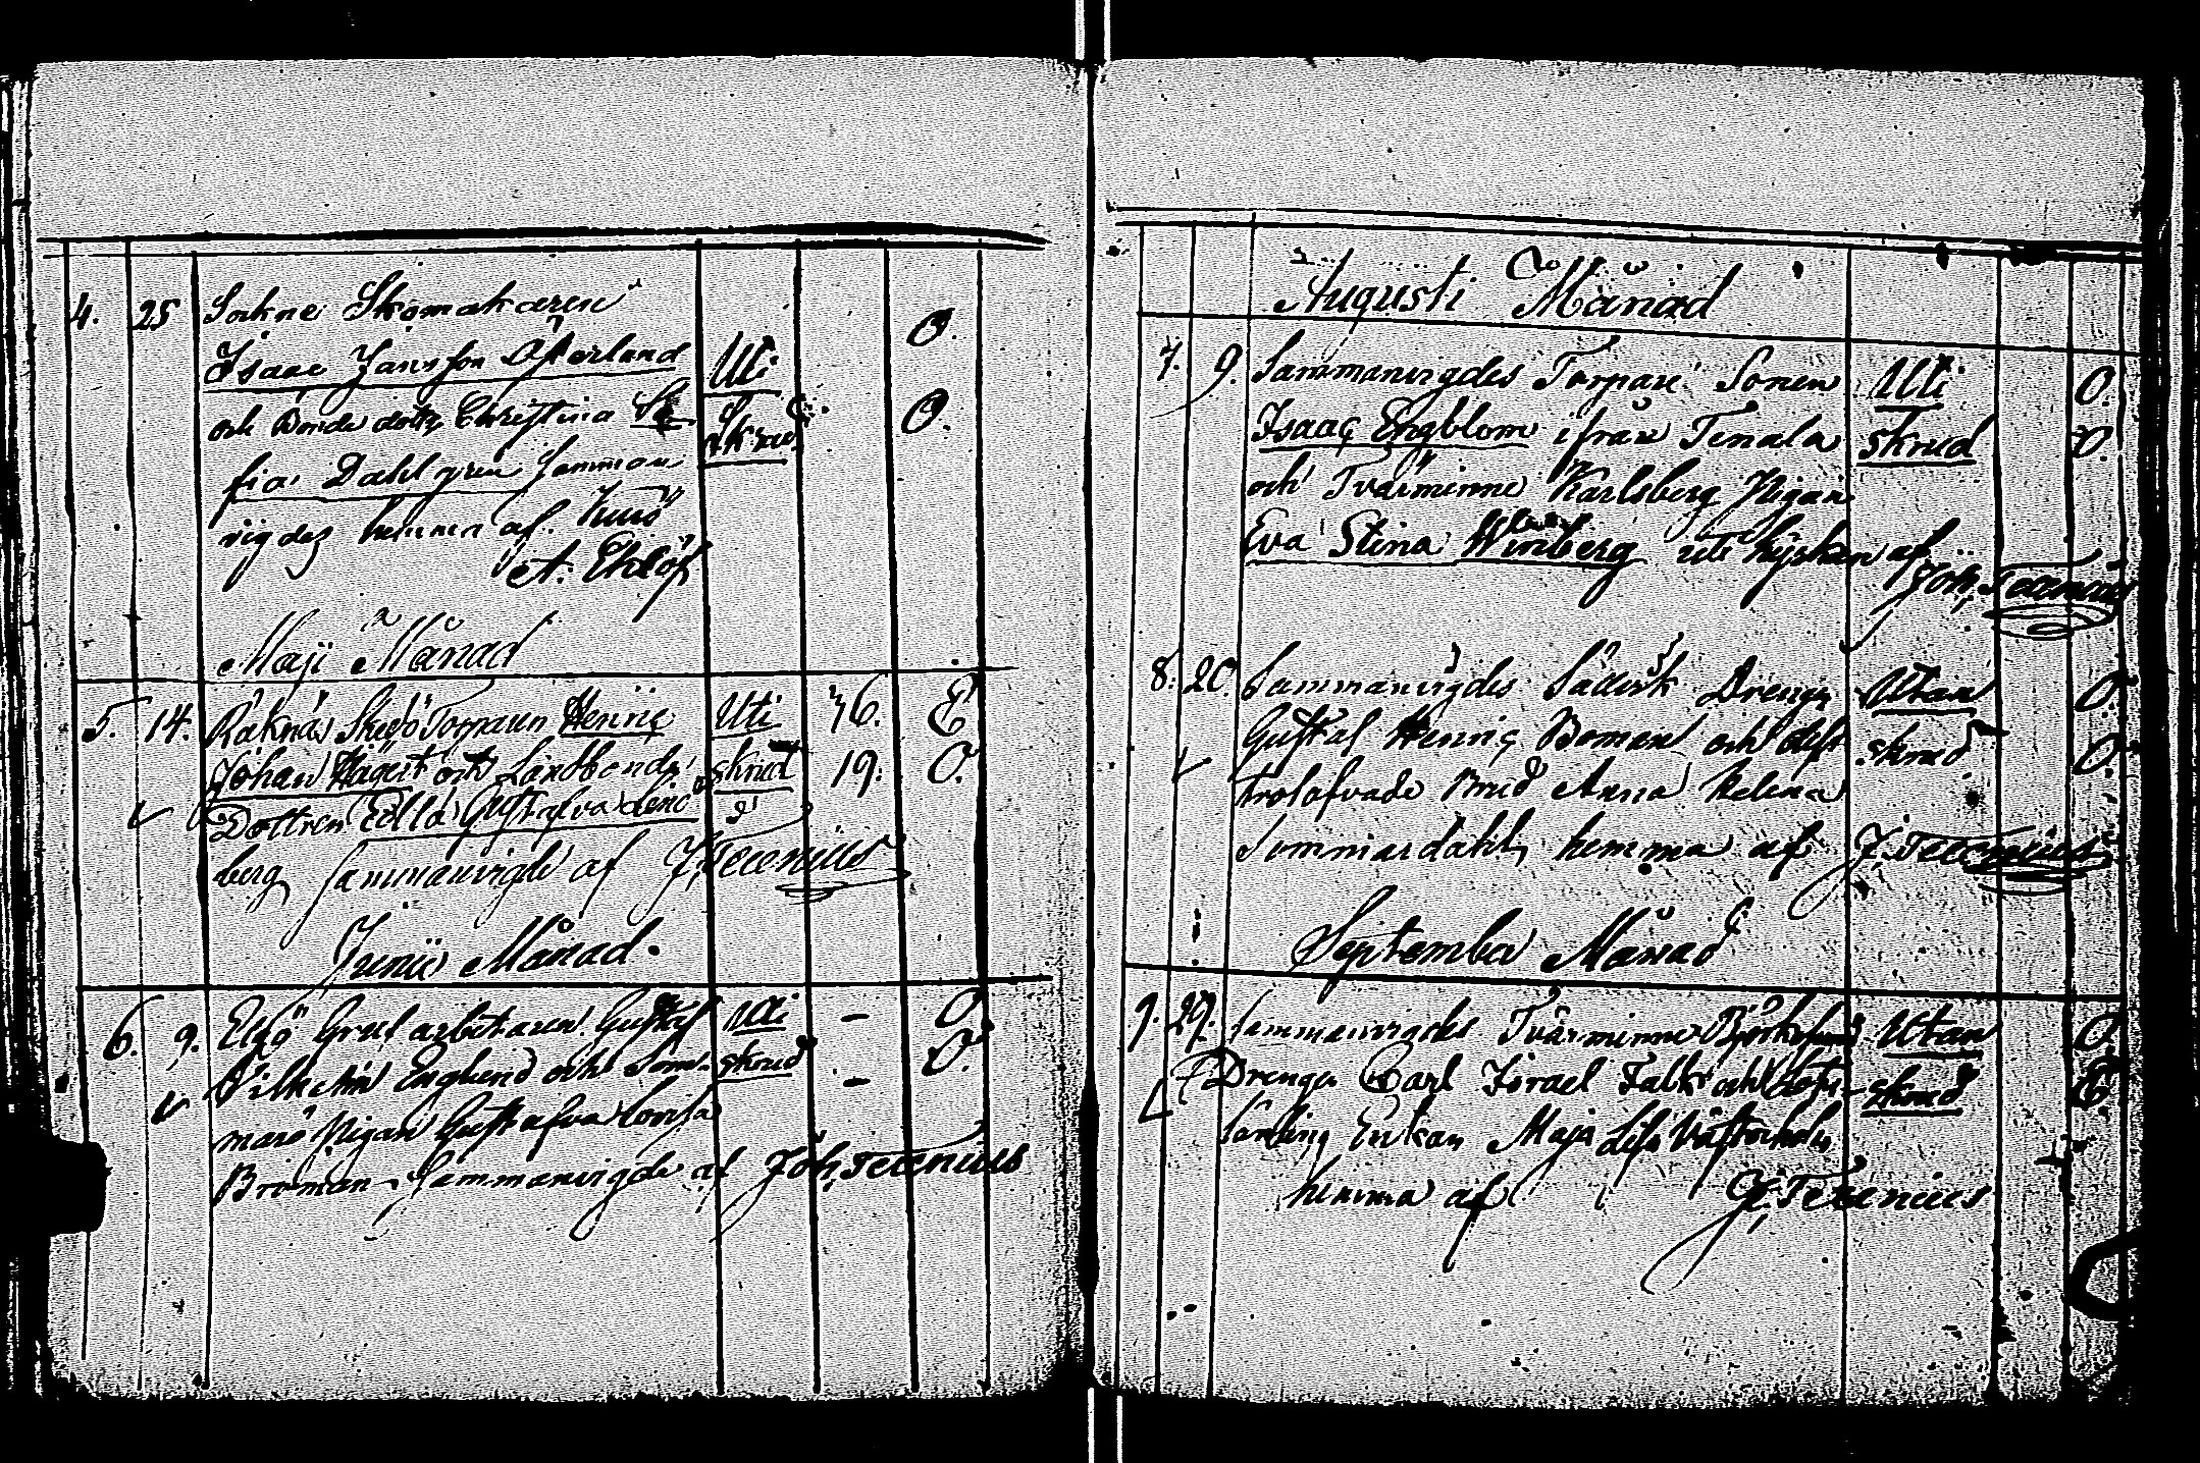 4. 25 Sockne Skomakaren
Isaac Jansson Österlund Uti O.
och Bonde dottr Christina So- Skrud O.
fia Dahlgren samman
vigdes hemma af
A. Ekelöf
Maji Månad
5. 14. Skogö Torparen Henric Uti 36. E
Johan och Landbonde skrud 19. O.
Dottren Edla Gustafva
berg sammanvigde af J. Tecenius
Junii Månad.
6. 9. Elgö Gruf arbetaren Gustaf Uti - O
Vilhelm Englund och Som- skrud - O.
marö Pigan Gustafva Lovisa
Broman Sammanvigde af Joh. Tecenius
Augusti Månad
7. 9. Sammanvigdes Torpare Sonen Uti O.
Isaac Engblom ifrån Tenala skrud O.
och Tvärminne Karlsberg Pigan
Eva Stina Winberg uti kyrkan af
Joh. Tecenius
8. 20. Sammanvigdes Drengen Utan O.
Gustaf Henric Boman och dess skrud O.
trolofvade Brud Anna Helena
Sommardahl, hemma af J. Tecenius
September Månad
9. 29. Sammanvigdes Tvärminne Utan O.
Drengen Carl Israel Falk och skrud E
Enkan Maja Lisa
hemma af J. Tecenius